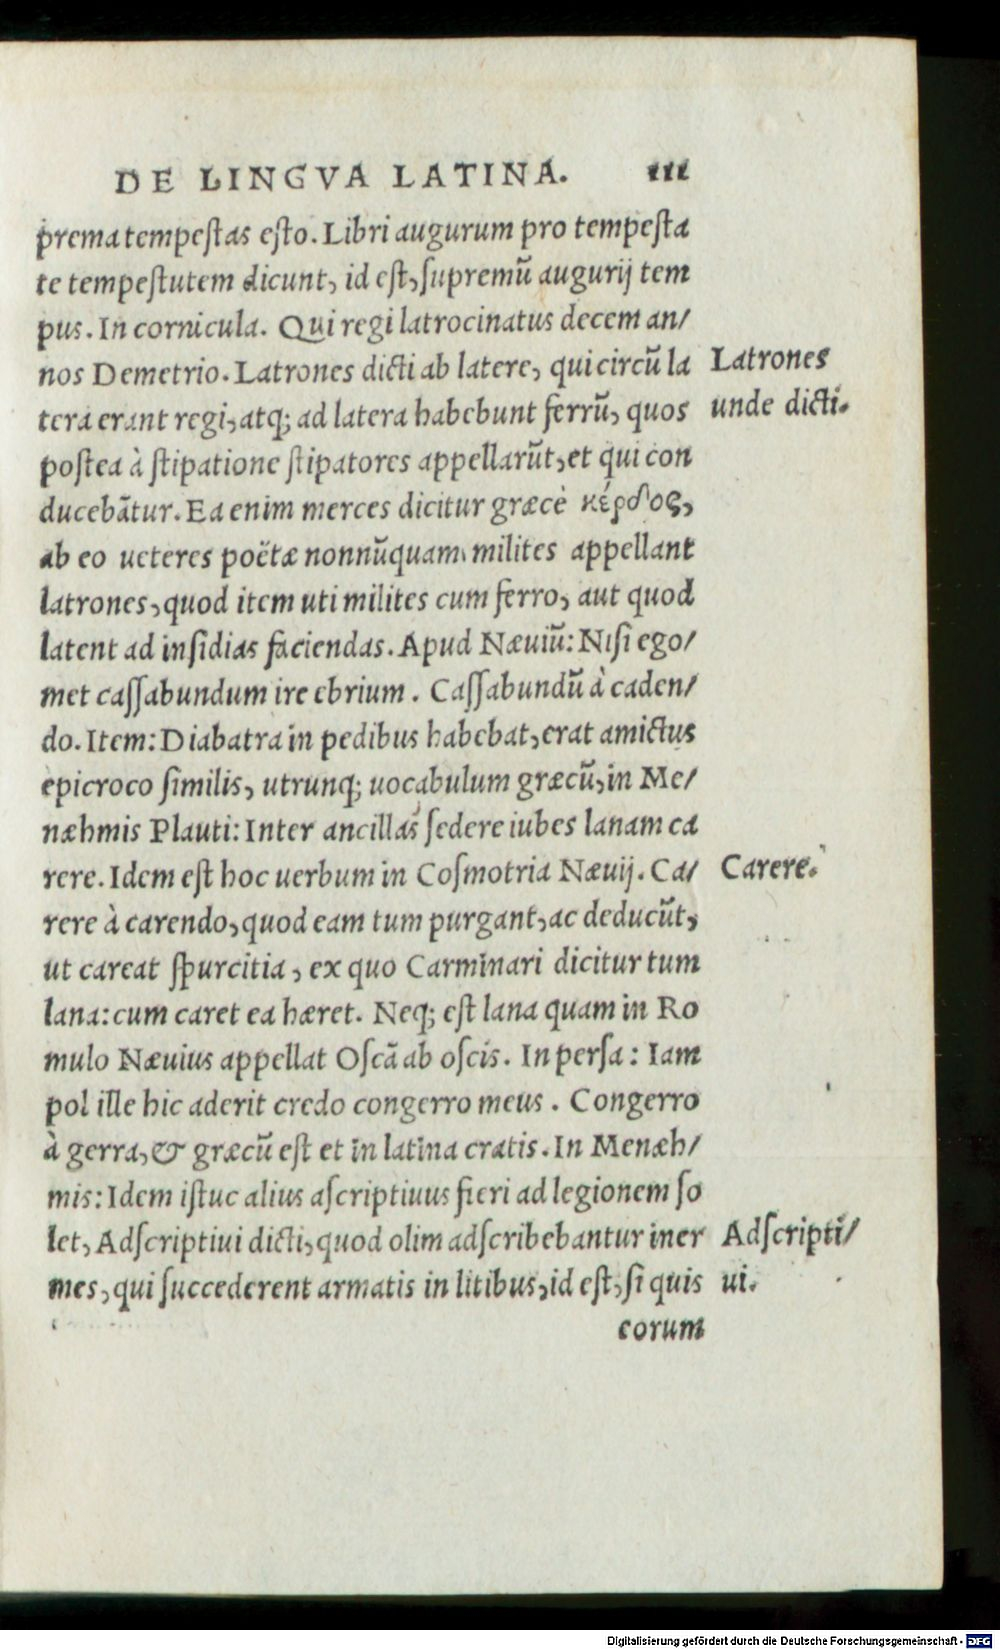 DE LINGVA LATINA. III
prema tempeſtas eſto. Libri augurum pro tempeſta
te tempeſtutem dicunt, id eſt, ſupremũ augurij tem
pus. In cornicula. Qui regi latrocinatus decem an/
nos Demetrio. Latrones dicti ab latere, qui circũ la
Latrones
tera erant regi, atq; ad latera habebunt ferrũ, quos
unde dicti.
poſtea à ſtipatione ſtipatores appellarũt, et qui con
ducebãtur. Ea enim merces dicitur græcè κέρδος,
ab eo ueteres poëtæ nonnũquam milites appellant
latrones, quod item uti milites cum ferro, aut quod
latent ad inſidias faciendas. Apud Næuiũ: Niſi ego/
met caſſabundum ire ebrium. Caſſabundũ à caden/
do. Item: Diabatra in pedibus habebat, erat amictus
epicroco ſimilis, utrunq; uocabulum græcũ, in Me/
næhmis Plauti: Inter ancillas ſedere iubes lanam ca
rere. Idem eſt hoc uerbum in Coſmotria Næuij. Ca/
Carere.
rere à carendo, quod eam tum purgant, ac deducũt,
ut careat ſpurcitia, ex quo Carminari dicitur tum
lana: cum caret ea hæret. Neq; eſt lana quam in Ro
mulo Næuius appellat Oſcã ab oſcis. In perſa: Iam
pol ille hic aderit credo congerro meus. Congerro
à gerra, & græcũ eſt et in latina cratis. In Menæh/
mis: Idem iſtuc alius aſcriptiuus fieri ad legionem ſo
let, Adſcriptiui dicti, quod olim adſcribebantur iner
Adſcripti/
mes, qui ſuccederent armatis in litibus, id eſt, ſi quis
ui.
eorum
Digitalisierung gefördert durch die Deutsche Forschungsgemeinschaft - DFG